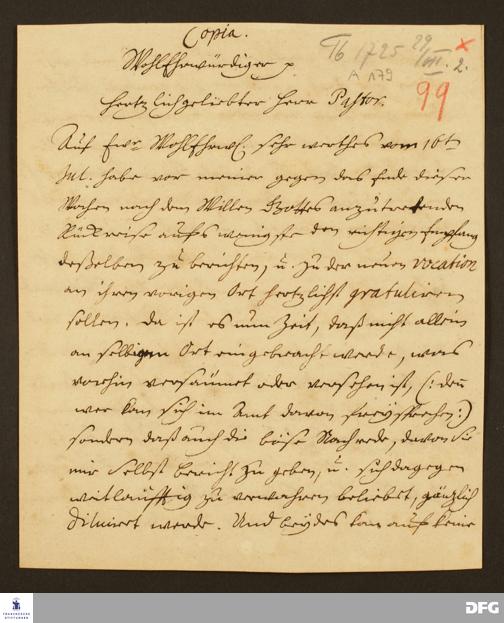 Copia.
WohlEhrwürdiger p
Tb 1725 29/VII. 2. x
A 179
99
Hertzlichgeliebter Herr Pastor.
Auf Ewr WohlEhrw. sehr werthes vom 16t
Jul. habe vor meiner gegen das Ende dieser
Wochen nach dem Willen Gottes anzutretenden
Rückreise aufs wenigste den richtigen Empfang
deßelben zu berichten, u. zu der neuen vocation
an ihren vorigen Ort hertzlichst gratuliren
sollen. Da ist es nun Zeit, daß nicht allein
an selbigem Ort eingebracht werde, was
vorhin versäumet oder versehen ist, (: denn
wer kan sich im Amt davon freysprechen :)
sondern daß auch die böse Nachrede, davon Sie
mir selbst bericht zu geben, u. sich dagegen
weitläufftig zu verwahren beliebet, gäntzlich
diluiret werde. Und beydes kan auf keine
FRANCKESCHE
STIFTUNGEN
DFG